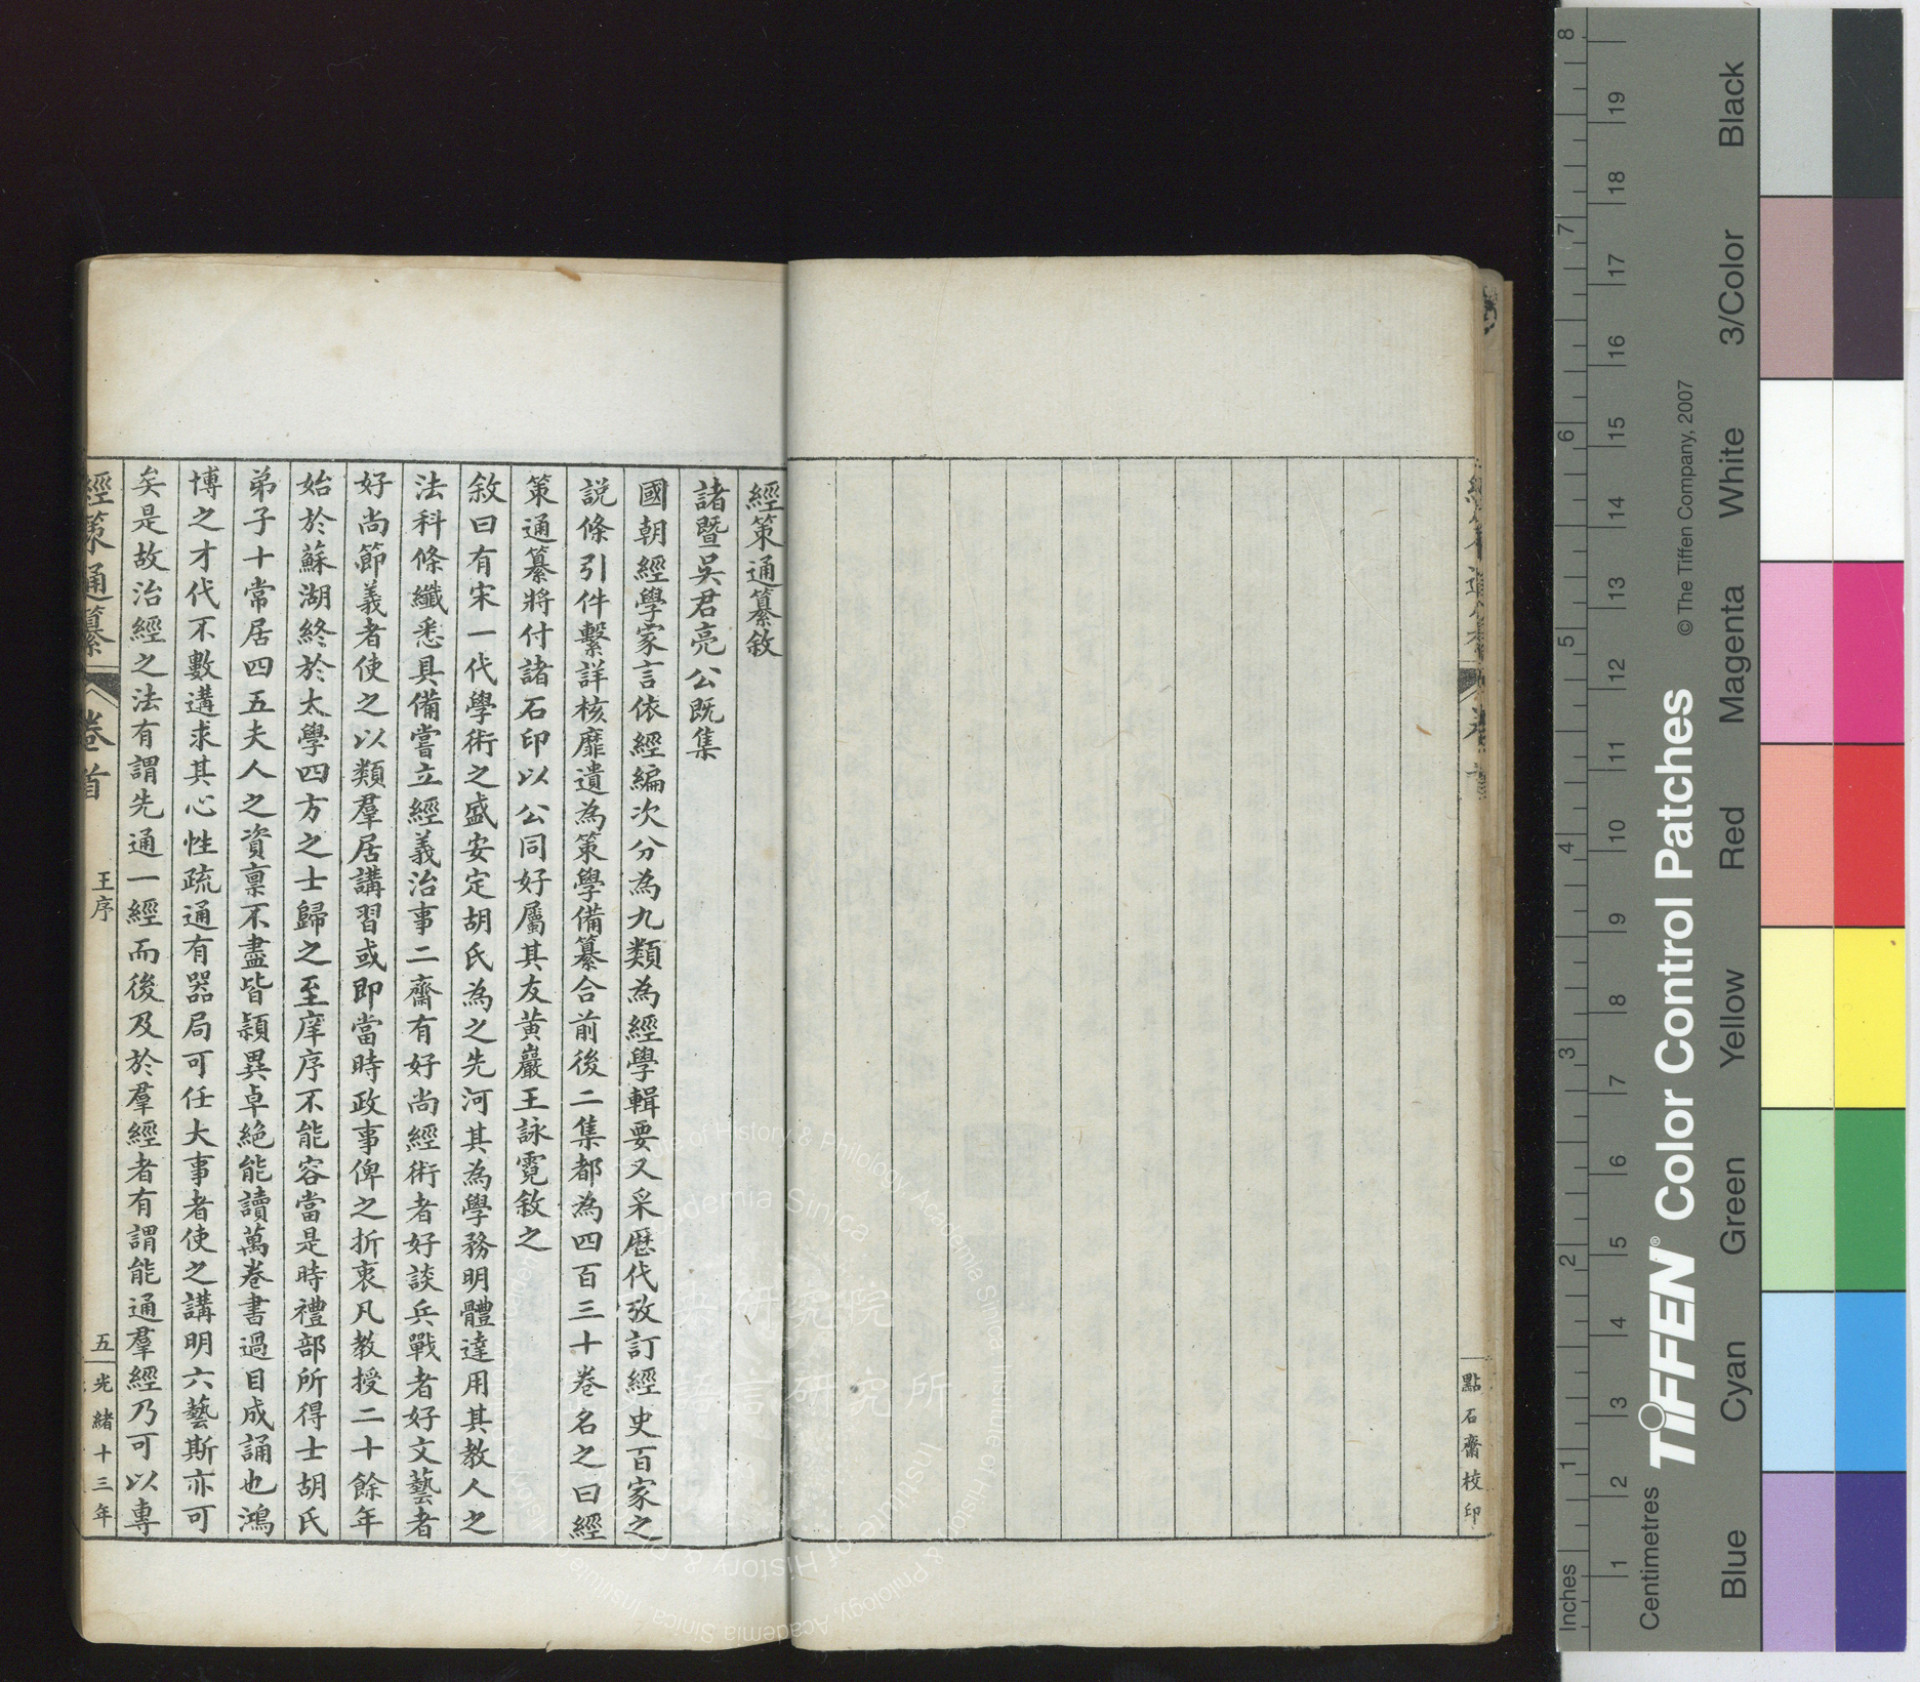 經策通纂敘
諸暨吳君亮公既集
國朝經學家言依經編次分為九類為經學輯要又采歷代攷訂經史百家之
說條引件繫詳核靡遺為策學備纂合前後二集都為四百三十卷名之曰經
策通纂將付諸石印以公同好屬其友黃巖王詠霓敘之
敘曰有宋一代學術之盛安定胡氏為之先河其為學務明體達用其教人之
法科條纖悉具備嘗立經義治事二齋有好尚經術者好談兵戰者好文藝者
好尚節義者使之以類羣居講習或即當時政事俾之折衷凡教授二十餘年
始於蘇湖終於太學四方之士歸之至庠序不能容當是時禮部所得士胡氏
弟子十常居四五夫人之資稟不盡皆穎異卓絕能讀萬卷書過目成誦也鴻
博之才代不數遘求其心性疏通有器局可任大事者使之講明六藝斯亦可
矣是故治經之法有謂先通一經而後及於羣經者有謂能通羣經乃可以專
經策通纂 卷首 王序 五 光緒十三年
點石齋校印
Inches 1 2 3 4 5 6 7 8
Centimetres 1 2 3 4 5 6 7 8 9 10 11 12 13 14 15 16 17 18 19
TIFFEN® Color Control Patches © The Tiffen Company, 2007
Blue Cyan Green Yellow Red Magenta White 3/Color Black
Institute of History & Philology, Academia Sinica